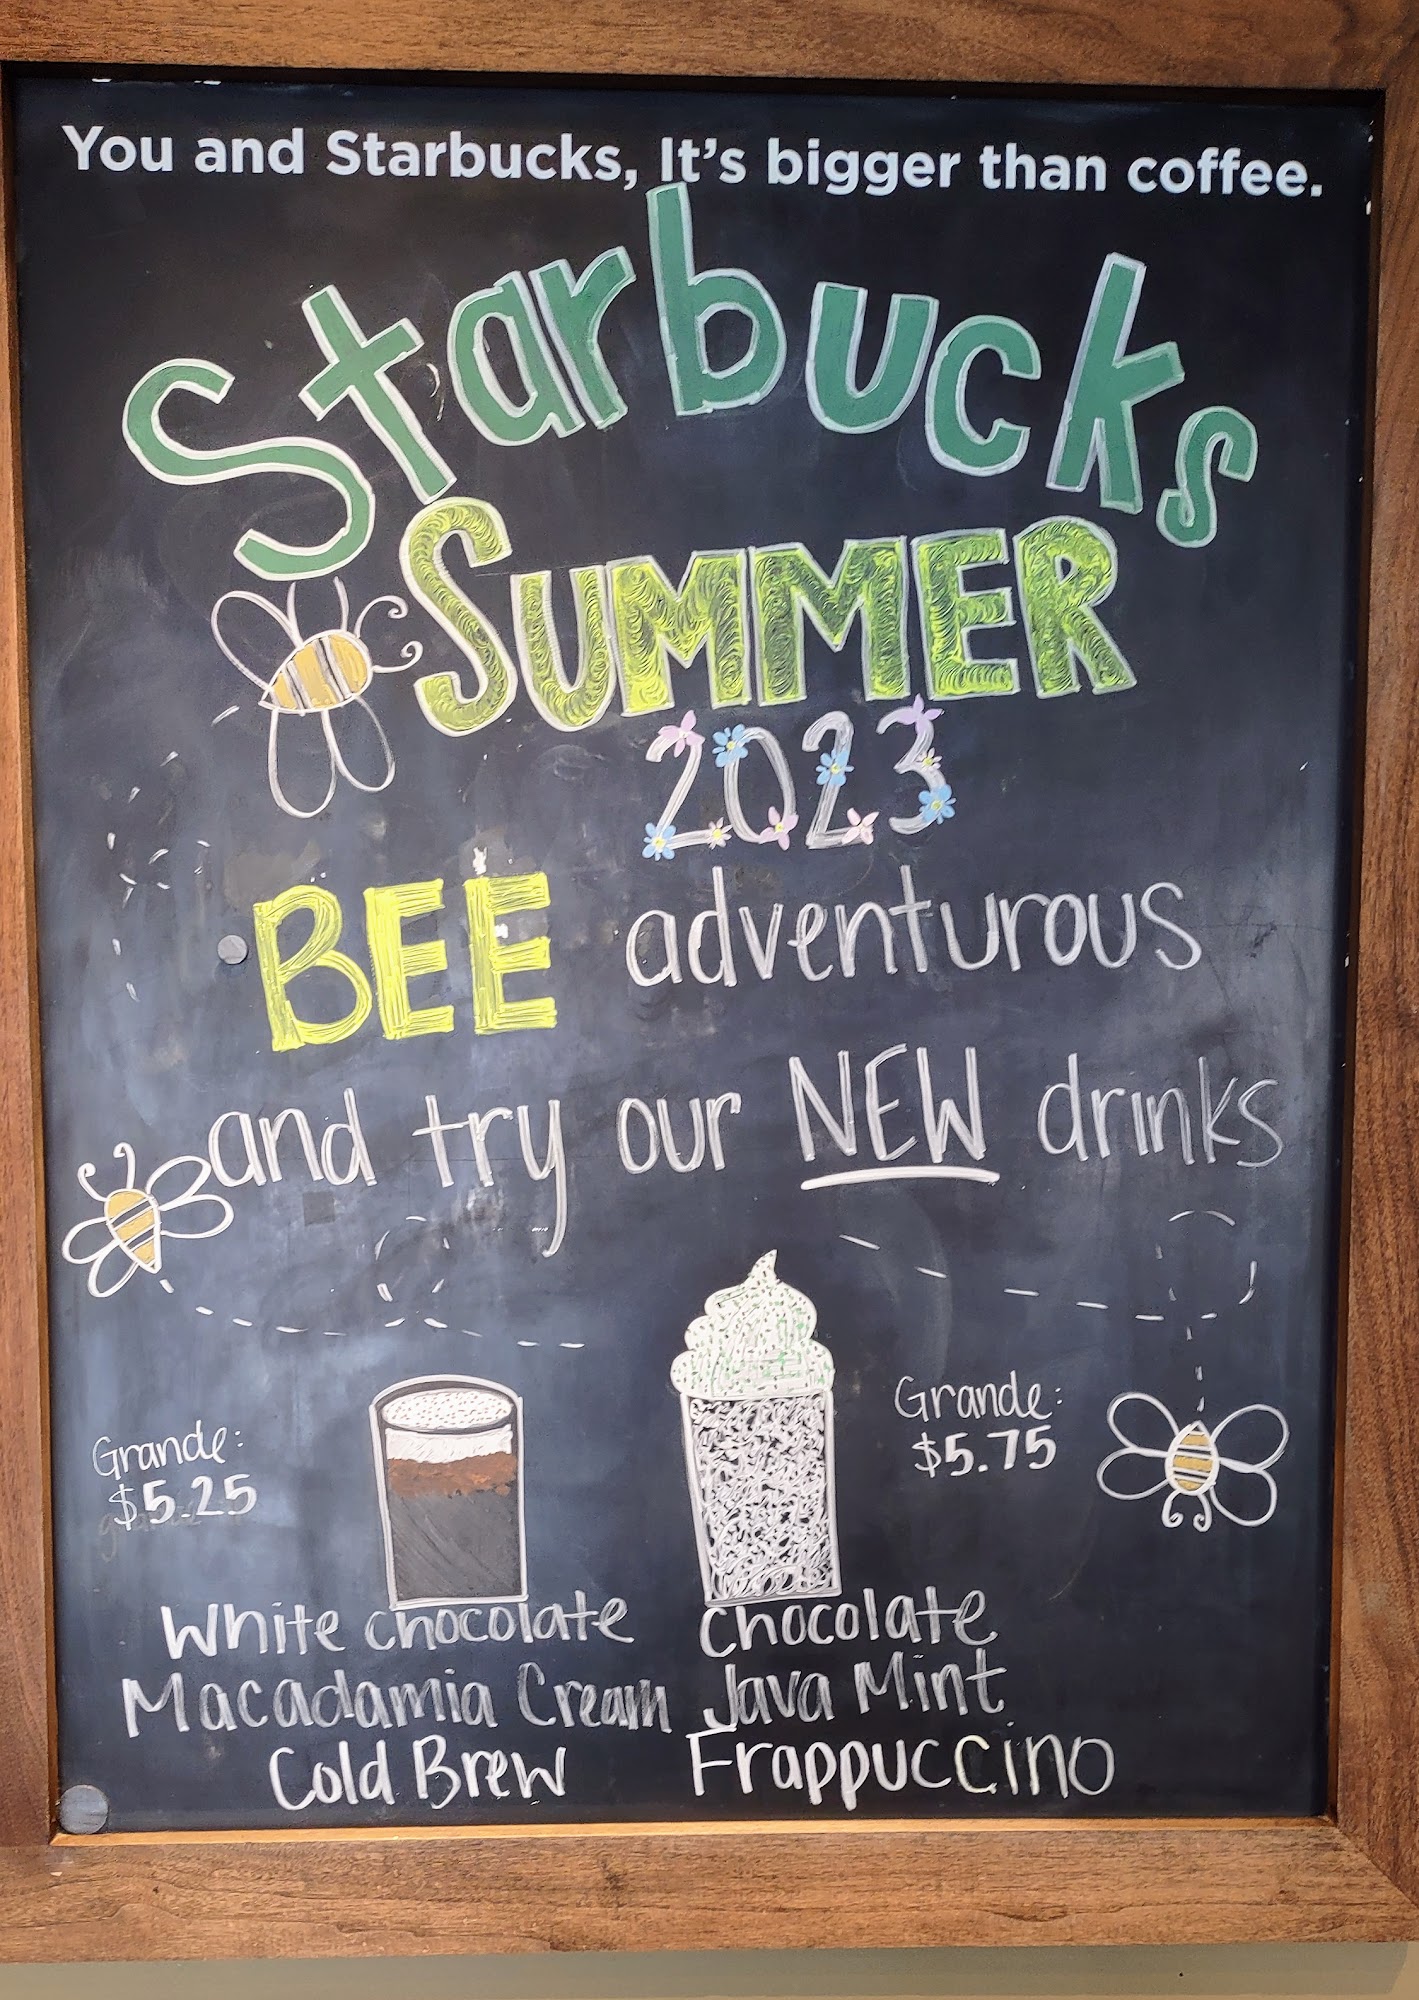 You and Starbucks, It's bigger than coffee.
Starbucks
SUMMER
2023
BEE adventurous
and try our NEW drinks
Grande:
$5.25
Grande:
$5.75
White chocolate
Macadamia Cream
Cold Brew
Chocolate
Java Mint
Frappuccino